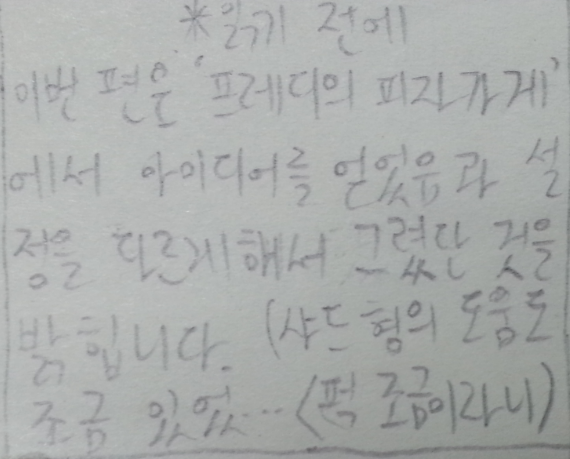 *읽기 전에
이번 편은 '프레디의 피자가게'
에서 아이디어를 얻었음과 설
정을 다르게해서 그렸단 것을
밝힙니다. (샤드형의 도움도
조금 있었…<퍽 조금이라니)